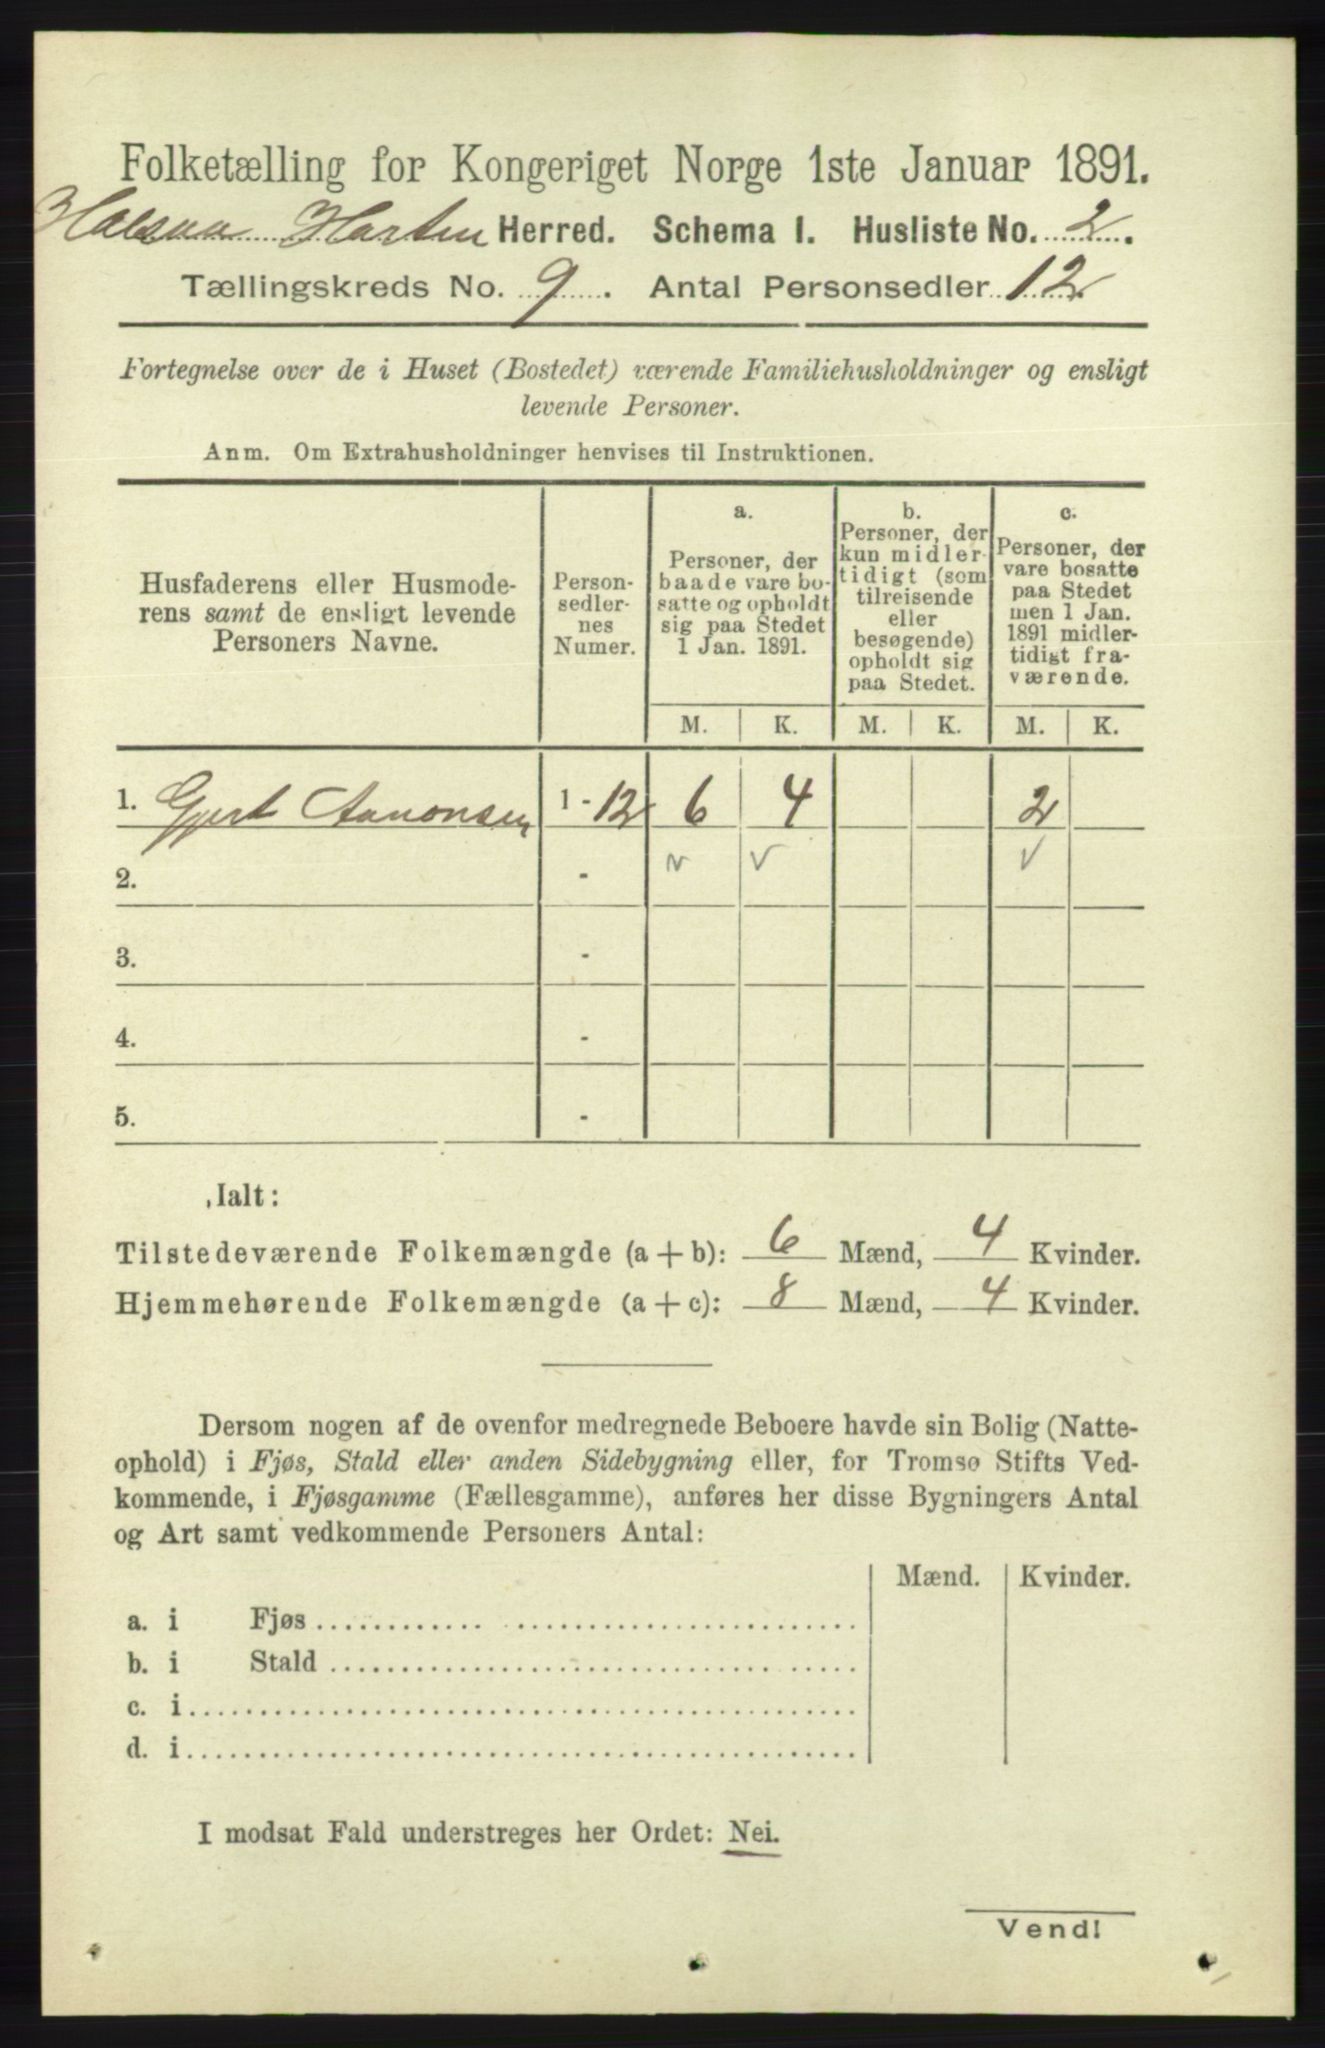 Folketælling for Kongeriget Norge 1ste Januar 1891.
Halsaa Hartm Herred. Schema I. Husliste No. 2.
Tællingskreds No. 9. Antal Personsedler 12.
Fortegnelse over de i Huset (Bostedet) værende Familiehusholdninger og ensligt
levende Personer.
Anm. Om Extrahusholdninger henvises til Instruktionen.
Husfaderens eller Husmode-
rens samt de ensligt levende
Personers Navne.
Person-
sedler-
nes
Numer.
a.
Personer, der
baade vare bo-
satte og opholdt
sig paa Stedet
1 Jan. 1891.
b.
Personer, der
kun midler-
tidigt (som
tilreisende
eller
besøgende)
opholdt sig
paa Stedet.
c.
Personer, der
vare bosatte
paa Stedet
men 1 Jan.
1891 midler-
tidigt fra-
værende.
M. K. M. K. M. K.
1. Gjert Aanonsen 1 - 12 6 4 2
2. - v v v
3. -
4. -
5. -
Ialt:
Tilstedeværende Folkemængde (a + b): 6 Mænd, 4 Kvinder.
Hjemmehørende Folkemængde (a + c): 8 Mænd, 4 Kvinder.
Dersom nogen af de ovenfor medregnede Beboere havde sin Bolig (Natte-
ophold) i Fjøs, Stald eller anden Sidebygning eller, for Tromsø Stifts Ved-
kommende, i Fjøsgamme (Fællesgamme), anføres her disse Bygningers Antal
og Art samt vedkommende Personers Antal:
Mænd. Kvinder.
a. i Fjøs
b. i Stald
c. i
d. i
I modsat Fald understreges her Ordet: Nei.
Vend!